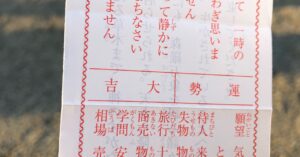 て 一時の
わぎ思いま
せん
て静かに
ちなさい
ません
運勢 大吉
願望 気
と
待人 来
失物
旅行
商売 物
学問 安
相場 売